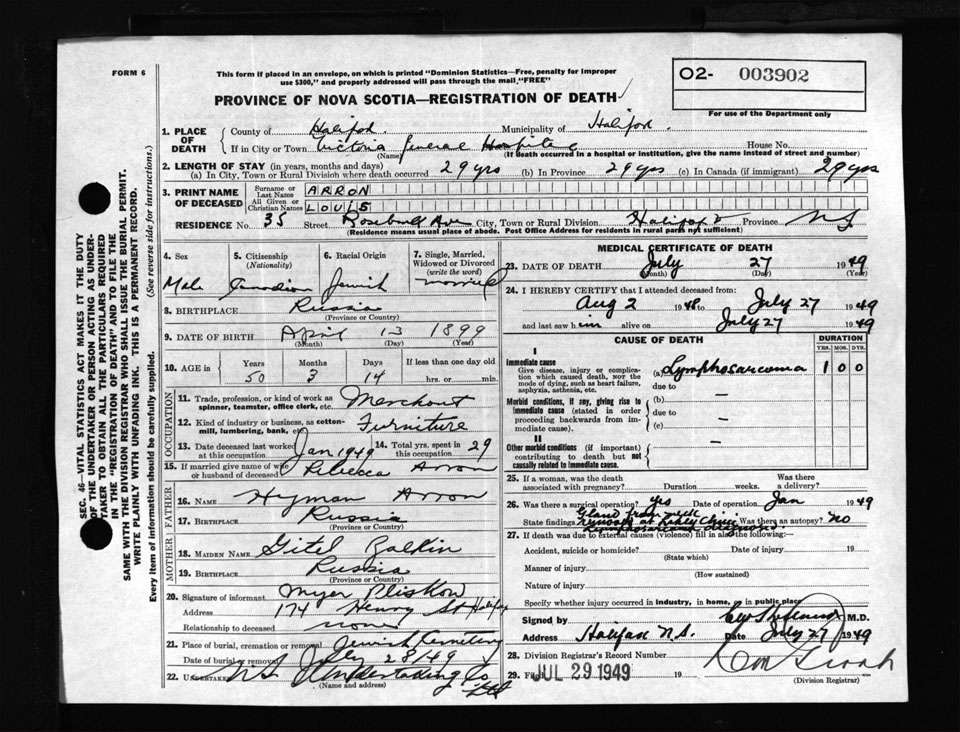 FORM 6
This form if placed in an envelope, on which is printed "Dominion Statistics—Free, penalty for improper
use $300," and properly addressed will pass through the mail, "FREE"
O2- 003902
For use of the Department only
PROVINCE OF NOVA SCOTIA—REGISTRATION OF DEATH
1. PLACE OF DEATH
County of Halifax. Municipality of Halifax.
If in City or Town Victoria General Hospital House No.
(Name) (If death occurred in a hospital or institution, give the name instead of street and number)
2. LENGTH OF STAY (in years, months and days)
(a) In City, Town or Rural Division where death occurred 29 yrs (b) In Province 29 yrs (c) In Canada (if immigrant) 29 yrs
3. PRINT NAME OF DECEASED
Surname or Last Name ARRON
All Given or Christian Names LOUIS
RESIDENCE No. 35 Street Rosebank Ave City, Town or Rural Division Halifax Province N.S.
(Residence means usual place of abode. Post Office Address for residents in rural parts not sufficient)
4. Sex Male
5. Citizenship (Nationality) Canadian
6. Racial Origin Jewish
7. Single, Married, Widowed or Divorced (write the word) married
8. BIRTHPLACE Russia
(Province or Country)
9. DATE OF BIRTH April 13 1899
(Month) (Day) (Year)
10. AGE in Years 50 Months 3 Days 14 If less than one day old hrs. or min.
OCCUPATION
11. Trade, profession or kind of work as spinner, teamster, office clerk, etc. Merchant
12. Kind of industry or business, as cotton-mill, lumbering, bank, etc. Furniture
13. Date deceased last worked at this occupation Jan 1949
14. Total yrs. spent in this occupation 29
15. If married give name of wife or husband of deceased Rebecca Arron
FATHER
16. Name Hyman Arron
17. Birthplace Russia
(Province or Country)
MOTHER
18. Maiden Name Gitel Balkin
19. Birthplace Russia
(Province or Country)
20. Signature of informant Myer Pliskow
Address 174 Henry St Halifax
Relationship to deceased none
21. Place of burial, cremation or removal Jewish Cemetery
Date of burial or removal July 28/49
22. Undertaker N.S. Undertaking Co Ltd
(Name and address)
MEDICAL CERTIFICATE OF DEATH
23. DATE OF DEATH July 27 1949
(Month) (Day) (Year)
24. I HEREBY CERTIFY that I attended deceased from:
Aug 2 1948 to July 27 1949
and last saw him alive on July 27 1949
CAUSE OF DEATH
DURATION
YRS. MOS. DYS.
I
Immediate cause
Give disease, injury or complication which caused death, not the mode of dying, such as heart failure, asphyxia, asthenia, etc.
(a) Lymphosarcoma 1 0 0
due to
Morbid conditions, if any, giving rise to immediate cause (stated in order proceeding backwards from immediate cause).
(b) —
due to —
(c)
II
Other morbid conditions (if important) contributing to death but not causally related to immediate cause.
—
25. If a woman, was the death associated with pregnancy? Duration weeks. Was there a delivery?
26. Was there a surgical operation? yes Date of operation Jan 1949
State findings Gland from neck removed at Lahey Clinic Lymphosarcoma diagnosed. Was there an autopsy? no
27. If death was due to external causes (violence) fill in also the following:—
Accident, suicide or homicide? Date of injury 19
(State which)
Manner of injury
(How sustained)
Nature of injury
Specify whether injury occurred in industry, in home, or in public place
Signed by M.D.
Address Halifax N.S. Date July 27 1949
28. Division Registrar's Record Number
29. Filed JUL 29 1949 19
(Division Registrar)
SEC. 46—VITAL STATISTICS ACT MAKES IT THE DUTY
OF THE UNDERTAKER OR PERSON ACTING AS UNDER-
TAKER TO OBTAIN ALL THE PARTICULARS REQUIRED
IN THE "REGISTRATION OF DEATH" AND TO FILE THE
SAME WITH THE DIVISION REGISTRAR WHO SHALL ISSUE THE BURIAL PERMIT.
WRITE PLAINLY WITH UNFADING INK. THIS IS A PERMANENT RECORD.
Every item of information should be carefully supplied. (See reverse side for instructions.)